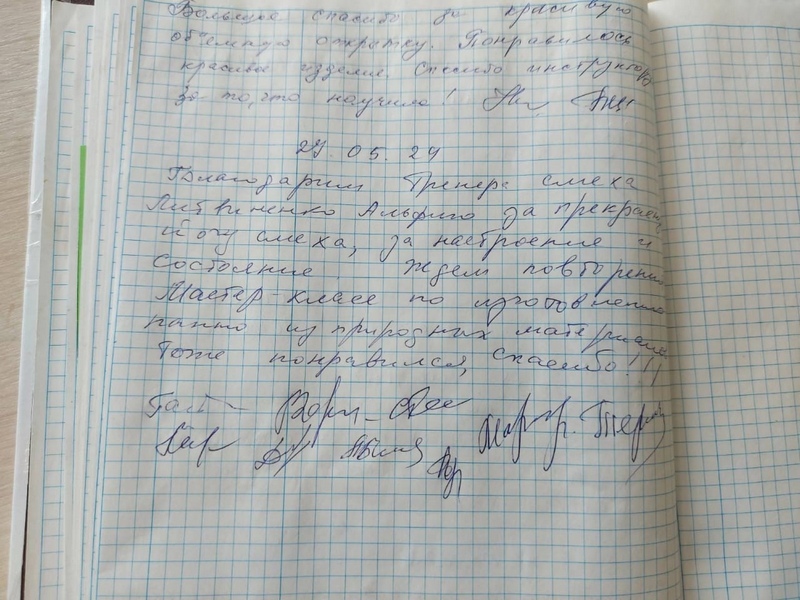 Большое спасибо за красивую
объёмную открытку. Понравилось
красивое изделие. Спасибо инструктору
за то, что научила!
27.05.24
Благодарим Тренера смеха
Литвиненко Альфию за прекрасн
йогу смеха, за настроение и
состояние. Ждем повторения
Мастер-класс по изготовлению
панно из природных материалов
тоже понравился, спасибо!!!